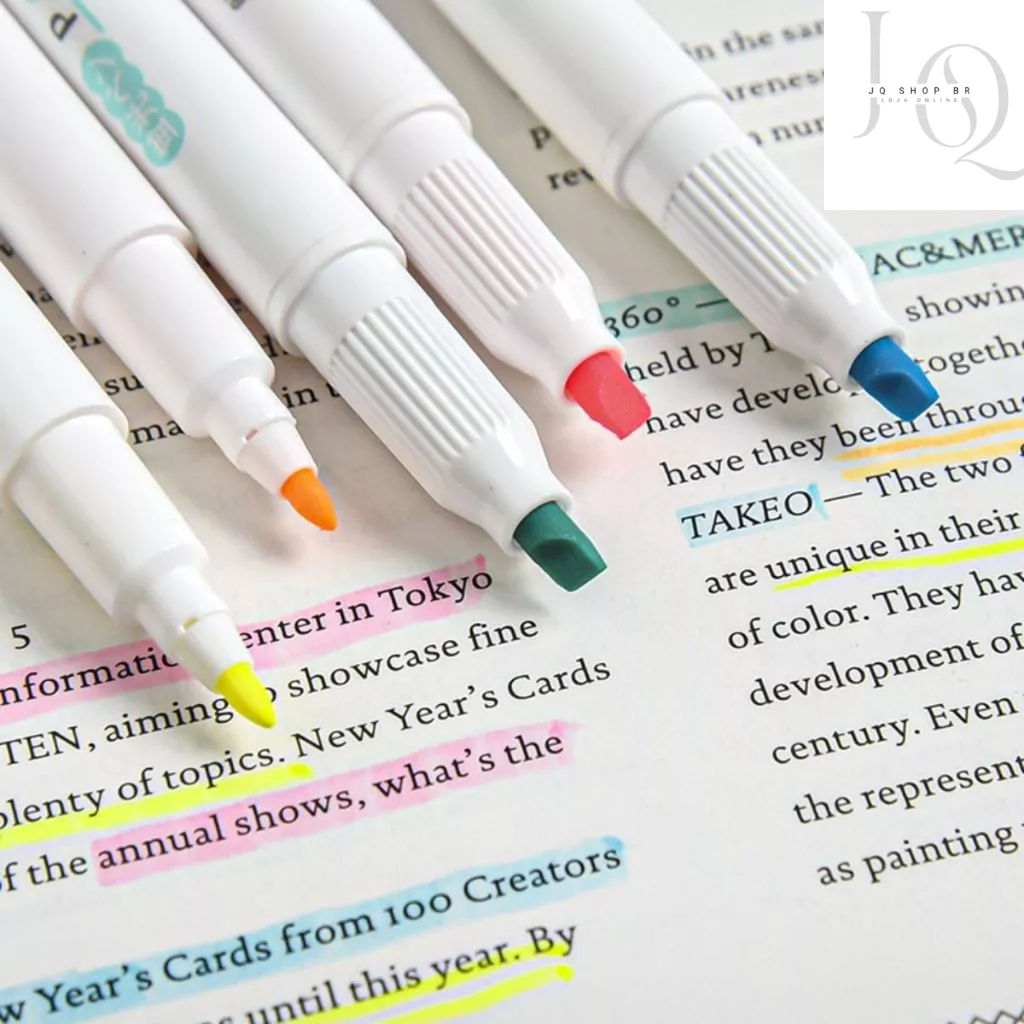 P
蛍光ペン
JQ SHOP BR
LOJA ONLINE
JQ
in the
in
5
enter in Tokyo
TEN, aiming showcase fine
plenty of topics. New Year's Cards
of the annual shows, what's the
Year's Cards from 100 Creators
until this year. By
AC&MER
360° — showin
held by
have develo togeth
have they been throu
TAKEO — The two
are unique in their
of color. They hav
development of
century. Even
the represent
as painting